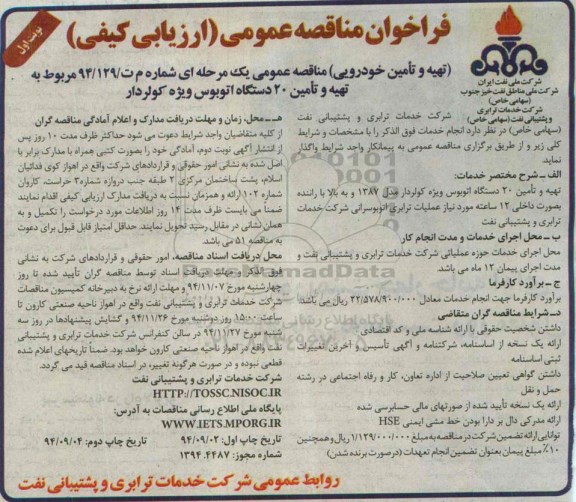 فراخوان مناقصه عمومی (ارزیابی کیفی)
نوبت اول
شرکت ملی نفت ایران
شرکت ملی مناطق نفت خیز جنوب
(سهامی خاص)
شرکت خدمات ترابری
و پشتیبانی نفت (سهامی خاص)
(تهیه و تأمین خودرویی) مناقصه عمومی یک مرحله ای شماره م ت/۹۴/۱۲۹ مربوط به
تهیه و تأمین ۲۰ دستگاه اتوبوس ویژه کولردار
شرکت خدمات ترابری و پشتیبانی نفت
(سهامی خاص) در نظر دارد انجام خدمات فوق الذکر را با مشخصات و شرایط
کلی زیر و از طریق برگزاری مناقصه عمومی به پیمانکار واجد شرایط واگذار
نماید.
الف ـ شرح مختصر خدمات:
تهیه و تأمین ۲۰ دستگاه اتوبوس ویژه کولردار مدل ۱۳۸۷ و به بالا با راننده
بصورت داخلی ۱۲ ساعته مورد نیاز عملیات ترابری اتوبوسرانی شرکت خدمات
ترابری و پشتیبانی نفت
ب ـ محل اجرای خدمات و مدت انجام کار
محل اجرای خدمات حوزه عملیاتی شرکت خدمات ترابری و پشتیبانی نفت و
مدت اجرای پیمان ۱۲ ماه می باشد.
ج ـ برآورد کارفرما
برآورد کارفرما جهت انجام خدمات معادل ۲۲/۵۷۸/۹۰۰/۰۰۰ ریال می باشد.
د ـ شرایط مناقصه گران متقاضی
داشتن شخصیت حقوقی با ارائه شناسه ملی و کد اقتصادی
ارائه یک نسخه از اساسنامه، شرکتنامه و آگهی تأسیس و آخرین تغییرات
ثبتی اساسنامه
داشتن گواهی تعیین صلاحیت از اداره تعاون، کار و رفاه اجتماعی در رشته
حمل و نقل
ارائه یک نسخه تأیید شده از صورتهای مالی حسابرسی شده
ارائه مدرکی دال بر دارا بودن خط مشی ایمنی HSE
توانایی ارائه تضمین شرکت در مناقصه به مبلغ ۱/۱۲۹/۰۰۰/۰۰۰ ریال و همچنین
۱۰٪ مبلغ پیمان بعنوان تضمین انجام تعهدات (در صورت برنده شدن)
هـ ـ محل، زمان و مهلت دریافت مدارک و اعلام آمادگی مناقصه گران
از کلیه متقاضیان واجد شرایط دعوت می شود حداکثر ظرف مدت ۱۰ روز پس
از انتشار آگهی نوبت دوم، آمادگی خود را بصورت کتبی همراه با مدارک برابر با
اصل شده به نشانی امور حقوقی و قراردادهای شرکت واقع در اهواز کوی فدائیان
اسلام، پشت ساختمان مرکزی ۲ طبقه جنب دروازه شماره۳ حراست، کاروان
شماره ۱۰۲ ارائه و همزمان نسبت به دریافت مدارک ارزیابی کیفی اقدام نمایند
ضمنا می بایست ظرف مدت ۱۴ روز اطلاعات مورد درخواست را تکمیل و به
همان نشانی در مقابل رسید تحویل نمایند. حداقل امتیاز قابل قبول برای دعوت
به مناقصه ۵۱ می باشد.
محل دریافت اسناد مناقصه، امور حقوقی و قراردادهای شرکت به نشانی
فوق الذکر و مهلت دریافت اسناد توسط مناقصه گران تأیید شده تا روز
چهارشنبه مورخ ۹۴/۱۱/۰۷ و مهلت ارائه نرخ به دبیرخانه کمیسیون مناقصات
شرکت خدمات ترابری و پشتیبانی نفت واقع در اهواز ناحیه صنعتی کارون تا
ساعت ۱۵:۰۰ روز دوشنبه مورخ ۹۴/۱۱/۲۶ و گشایش پیشنهادها در روز سه
شنبه مورخ ۹۴/۱۱/۲۷ در سالن کنفرانس شرکت خدمات ترابری و پشتیبانی
نفت واقع در اهواز ناحیه صنعتی کارون خواهد بود. ضمناً تاریخهای اعلام شده
قطعی نبوده و در صورت هرگونه تغییر، در اسناد مناقصه قید می گردد.
شرکت خدمات ترابری و پشتیبانی نفت
HTTP://TOSSC.NISOC.IR
پایگاه ملی اطلاع رسانی مناقصات به آدرس:
WWW.IETS.MPORG.IR
تاریخ چاپ اول: ۹۴/۰۹/۰۲ تاریخ چاپ دوم: ۹۴/۰۹/۰۴
شماره مجوز: ۱۳۹۴.۴۴۸۷
روابط عمومی شرکت خدمات ترابری و پشتیبانی نفت